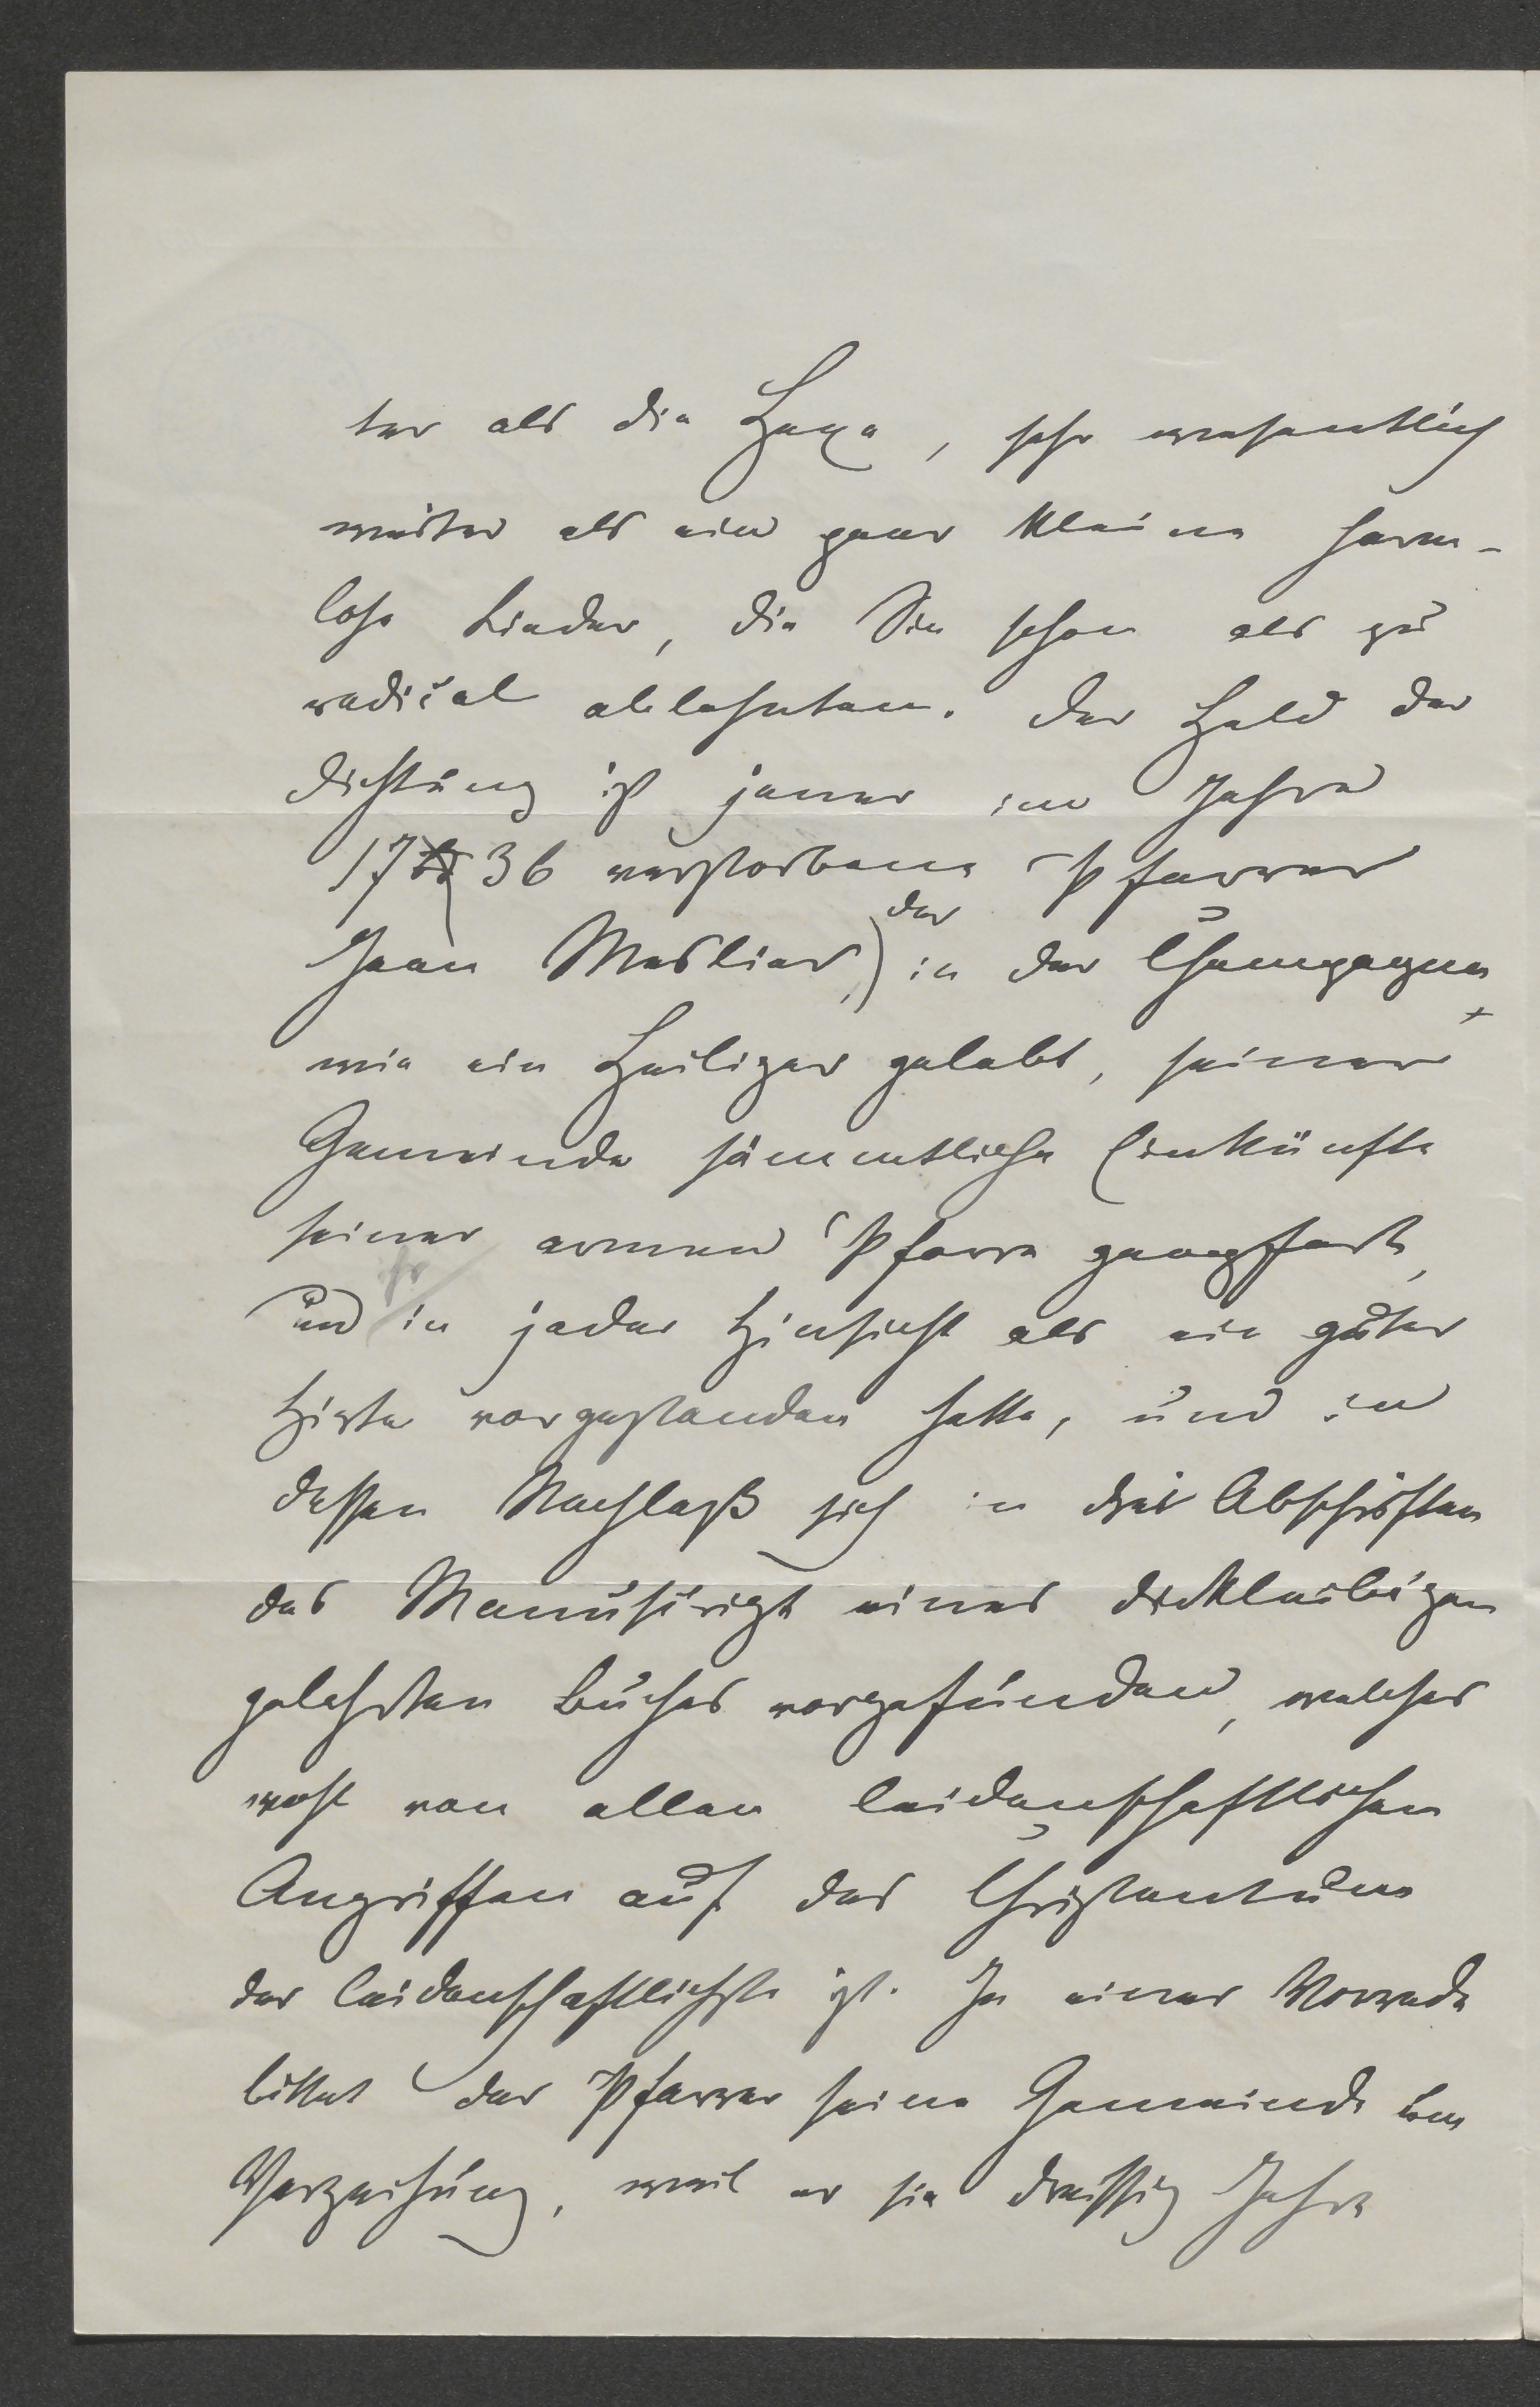 ter als die Hexe, sehr wesentlich
weiter als ein paar kleine harm-
lose Lieder, die Sie schon als zu
radical ablehnten. Der Held der
Dichtung ist jener im Jahre
1736 verstorbene Pfarrer
Jean Meslier, der in der Champagne
wie ein Heiliger gelebt, seiner
Gemeinde sämmtliche Einkünfte
seiner armen Pfarre geopfert,
und ihr in jeder Hinsicht als ein guter
Hirte vorgestanden hatte, und in
dessen Nachlaß sich in drei Abschriften
das Manuscript eines dickleibigen
gelehrten Buches vorgefunden, welches
wohl von allen leidenschaftlichen
Angriffen auf das Christentum
der leidenschaftlichste ist. In einer Vorrede
bittet der Pfarrer seine Gemeinde um
Verzeihung, weil er sie dreissig Jahre